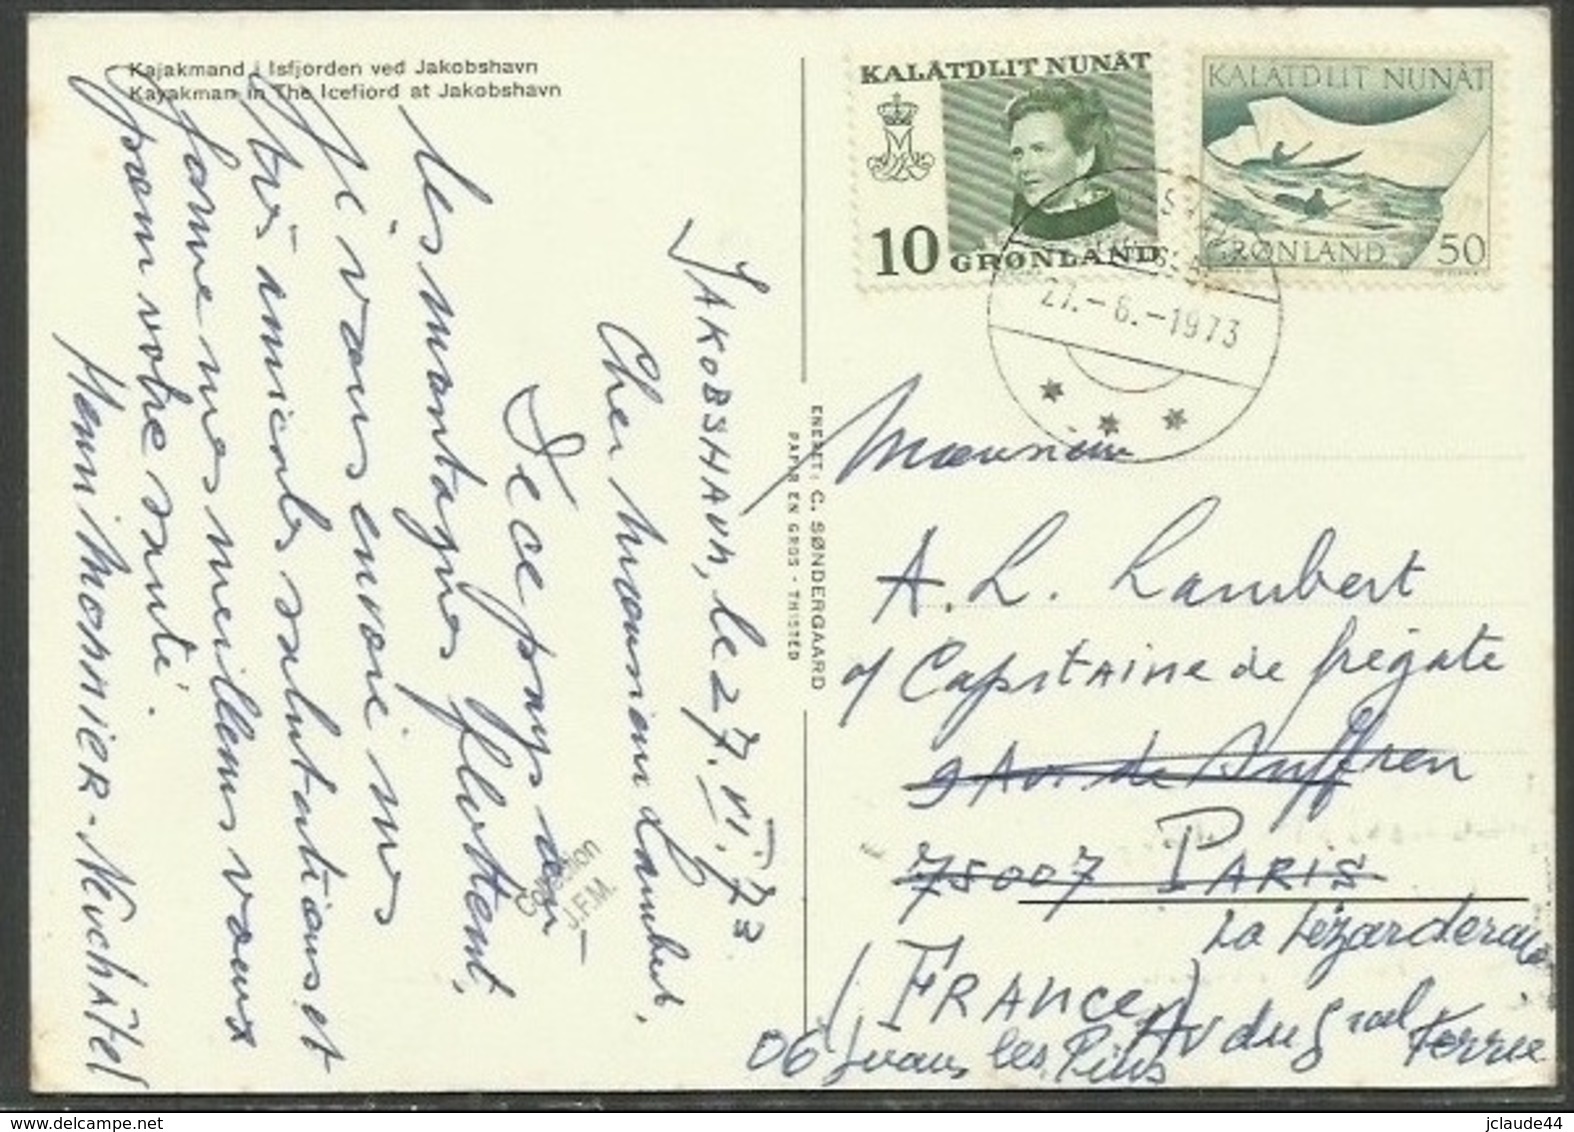 Kajakmand i Isfjorden ved Jakobshavn
Kayakman in The Icefiord at Jakobshavn
JAKOBSHAVN, le 27.VI.73
Cher Monsieur Lambert,
De ce pays où
les montagnes flottent,
je vous envoie mes
très amicales salutations et
forme mes meilleurs vœux
pour votre santé.
Henri MONNIER - NEUCHÂTEL
Collection
J.F.M.
ENERET: C. SØNDERGAARD
PAPIR EN GROS - THISTED
KALÂTDLIT NUNÂT
10 GRØNLAND
KALÂTDLIT NUNÂT
GRØNLAND 50
27.-6.-1973
Monsieur
A. L. Lambert
Capitaine de frégate
9 Av. de Suffren
75007 PARIS
(FRANCE)
La Lézarderaie
Av du Gral Ferrié
06 Juan les Pins
jclaude44